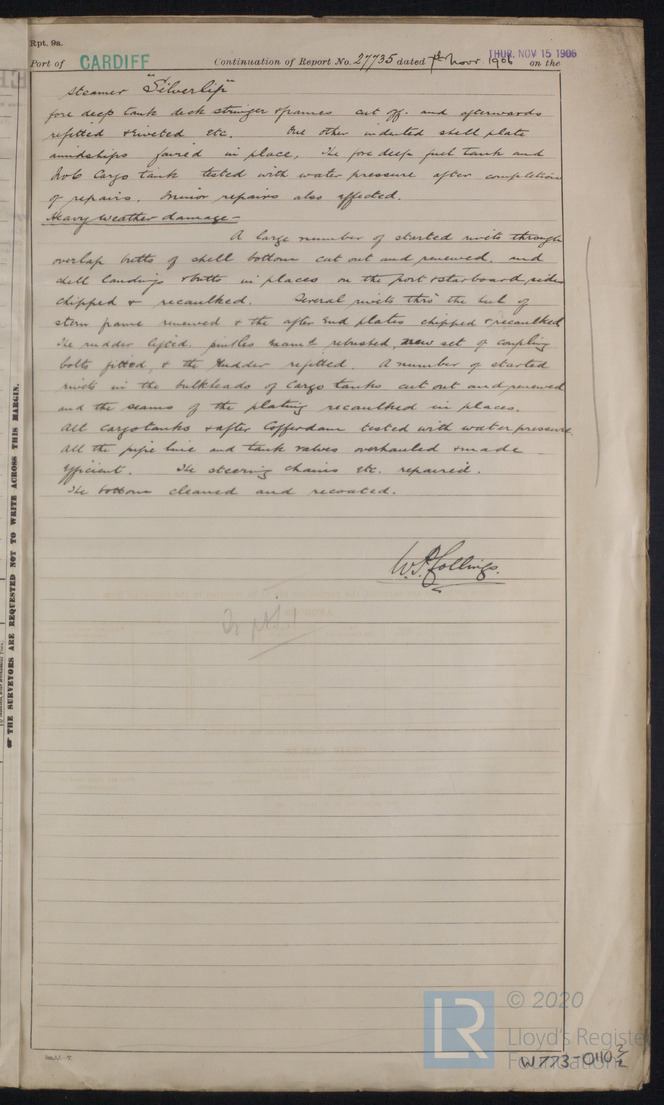 Rpt. 9a.
THUR. NOV 15 1906
Port of CARDIFF Continuation of Report No. 27735 dated 7th Novr 1906 on the
Steamer "Silverlip"
fore deep tank deck stringer & frames cut off. and afterwards
refitted & riveted etc. One other indented shell plate
amidships faired in place, The fore deep fuel tank and
No 6 Cargo tank tested with water pressure after completion
of repairs. Minor repairs also effected.
Heavy weather damage -
A large number of started rivets through
overlap butts of shell bottom cut out and renewed, and
shell landings & butts in places on the port & starboard sides
chipped & recaulked. Several rivets thro' the heel of
stern frame renewed & the after end plates chipped & recaulked
The rudder lifted, pintles rebushed, new set of coupling
bolts fitted, & the rudder refitted. A number of started
rivets in the bulkheads of Cargo tanks cut out and renewed
and the seams of the plating recaulked in places.
All Cargo tanks & after Cofferdam tested with water pressure.
All the pipe line and tank valves overhauled & made
efficient. The steering chains etc. repaired.
The bottom cleaned and recoated.
W. S. Collings.
THE SURVEYORS ARE REQUESTED NOT TO WRITE ACROSS THIS MARGIN.
LR
© 2020
Lloyd's Register
Foundation
W773-0110 2/2